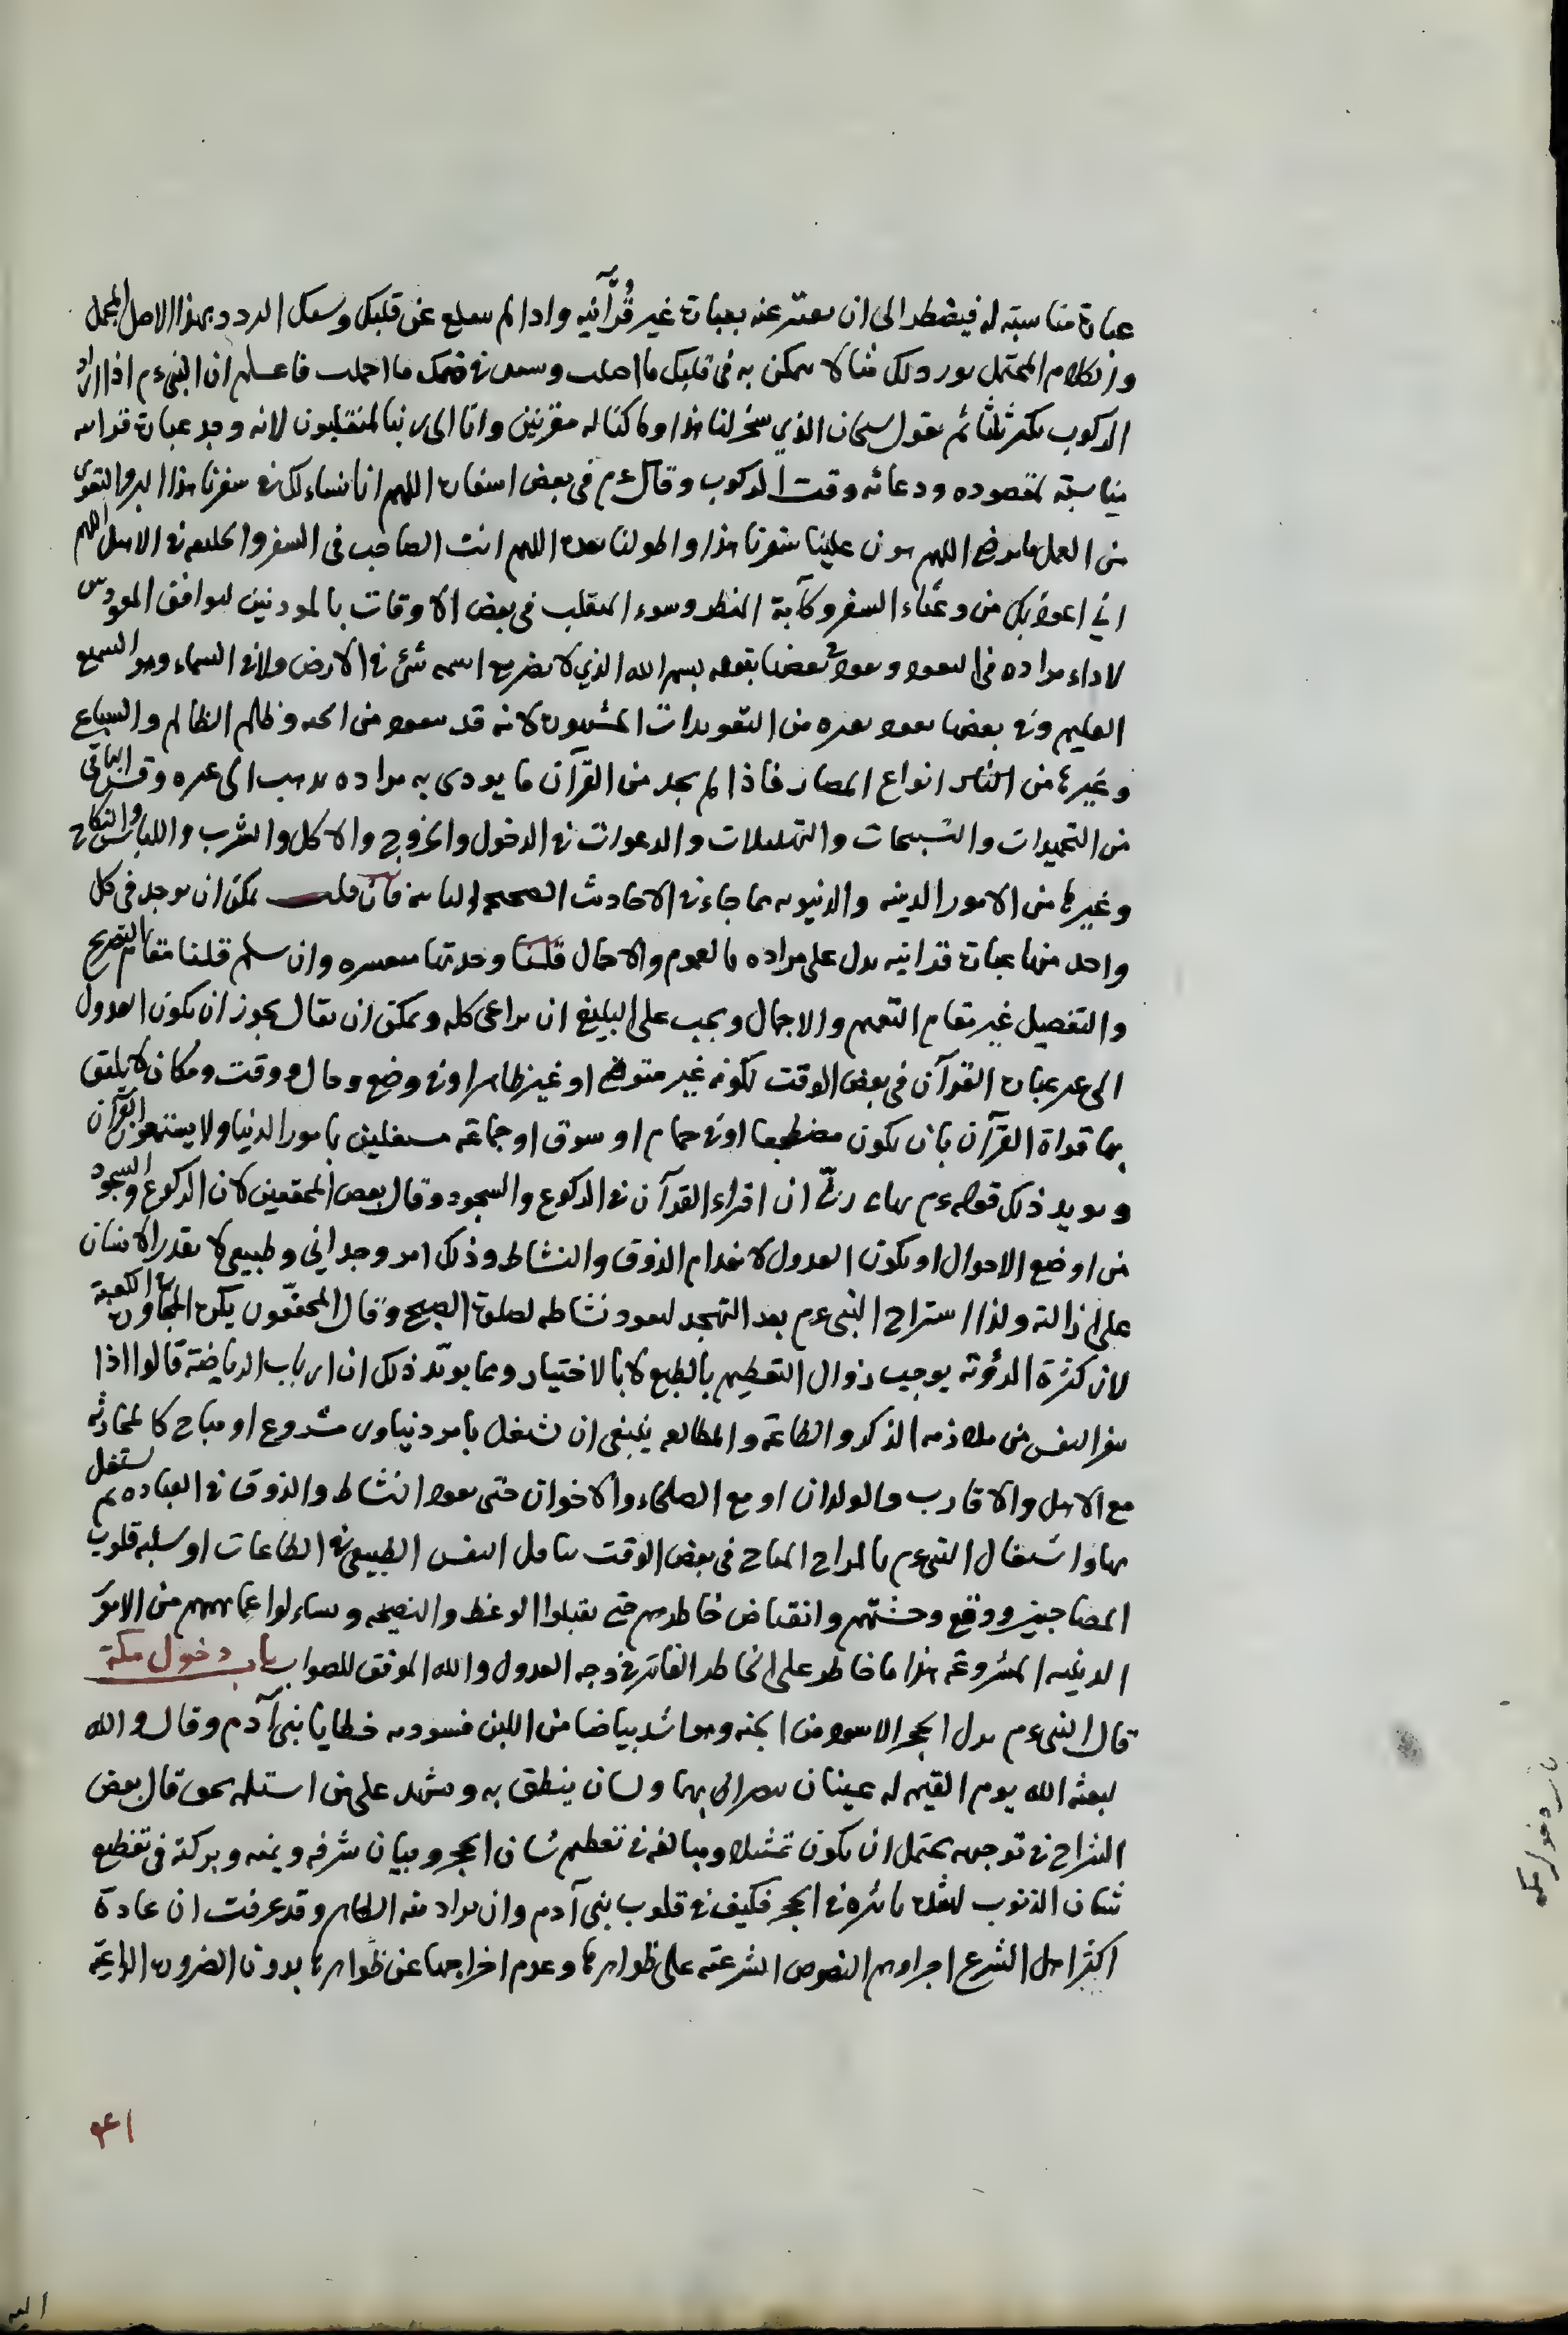 عبارة مناسبته له فيضطر الى ان يعتبر عنه بعبارة غير قُرآنيه واذا لم ينقلع عن قلبك وسعك التردد بهذا الاصل المجمل
والكلام المحتمل نورد لك مثالا يتمكن به في قلبك ما اصلت ويتبين في فهمك ما اجملت فاعلم ان النبي ءم اذا اراد
الركوب يكبر ثلثا ثم يقول سبحان الذي سخر لنا هذا وما كنا له مقرنين وانا الى ربنا لمنقلبون لانه وجد عبارة قرانيه
مناسبته لمقصوده ودعائه وقت الركوب وقال ءم في بعض اسفاره اللهم انا نساءلك في سفرنا هذا البر والتقوى
من العمل ما ترضى اللهم هون علينا سفرنا هذا واطو لنا بعده اللهم انت الصاحب في السفر والخليفه في الاهل اللهم
اني اعوذ بك من وعثاء السفر وكآبة المنظر وسوء المنقلب في بعض الاوقات بالمعوذتين لموافق المعوذتين
لاداء مراده في التعوذ ويعوذ في بعضها بقوله بسم الله الذي لا يضر مع اسمه شئ في الارض ولا في السماء وهو السميع
العليم وفي بعضها يعوذ بغيره من التعويذات المشهوره لانه قد يتعوذ من الجن وظلم الظالم والسباع
وغيرها من الناس انواع المضار فاذا لم يجد من القرآن ما يودى به مراده يذهب الى غيره وقس الباقي
من التحميدات والتسبيحات والتهليلات والدعوات في الدخول والخروج والاكل والشرب واللباس والنكاح
وغيرها من الامور الدينيه والدنيويه مما جاء في الاحاديث الصحيحه الثابته فان قلت يمكن ان يوجد في كل
واحد منها عبارة قرانيه يدل على مراده بالعموم والاجمال قلنا وجدتها متعسره وان سلم قلنا مقام التصريح
والتفصيل غير مقام التعميم والاجمال ويجب على البليغ ان يراعى كله ويمكن ان يقال يجوز ان يكون العدول
الى غير عبارة القرآن في بعض الوقت لكونه غير متوضئ او غير ظاهر او في وضع وحال ووقت ومكان لا يليق
بها قراة القرآن بان يكون مضطجعا او في حمام او سوق او جماعة مشغلين بامور الدنيا ولا يستمعون القرآن
ويويد ذلك قوله ءم نهاني ربّي ان اقراء القرآن في الركوع والسجود وقال بعض المحققين لان الركوع والسجود
من اوضع الاحوال او يكون العدول لانعدام الذوق والنشاط وذلك امر وجداني وطبيعي لا يقدر الانسان
على ازالته ولذا استراح النبي ءم بعد التهجد ليعود نشاطه لصلوة الصبح وقال المحققون يكره المجاورة بالكعبة
لان كثرة الرؤية يوجب زوال التعظيم بالطبع لا بالاختيار ومما يويّد ذلك ان ارباب الرياضة قالوا اذا
نفر النفس من ملازمه الذكر والطاعة والمطالعه ينبغي ان تشغل بامر دنياوى مشروع او مباح كالمحادثه
مع الاهل والاقارب والولدان او مع الصلحاء والاخوان حتى يعود النشاط والذوق في العباده ثم يشتغل
بها واشتغال النبي ءم بالمزاح المباح في بعض الوقت تنامل النفس الطبيعي في الطاعات او سلبه قلوب
المصاحبين ووقع وحشتهم وانقباض خاطرهم حتى يقبلوا الوعظ والنصيحه ويساءلوا عما يهمهم من الامور
الدينيه المشروعة هذا ما خاطر على الخاطر الفاتر في وجه العدول والله الموفق للصواب باب دخول مكة
قال النبي ءم نزل الحجر الاسود من الجنه وهو اشد بياضا من اللبن فسودته خطايا بني آدم وقال والله
ليبعثه الله يوم القيمه له عينان يبصر الى بهما ولسان ينطق به ويشهد على من استلمه بحق قال بعض
الشراح في توجيهه يحتمل ان يكون تمثيلا ومبالغه في تعظيم شان الحجر وبيان شرفه ويمنه وبركته في تفظيع
شان الذنوب لشده تاثيره في الحجر فكيف في قلوب بني آدم وان يراد منه الظاهر وقد عرفت ان عادة
اكثر اهل الشرع اجراوهم النصوص الشرعية على ظواهرها وعدم اخراجها عن ظواهرها بدون الضرورة الداعية
باب دخول مكه
٤١
اليه